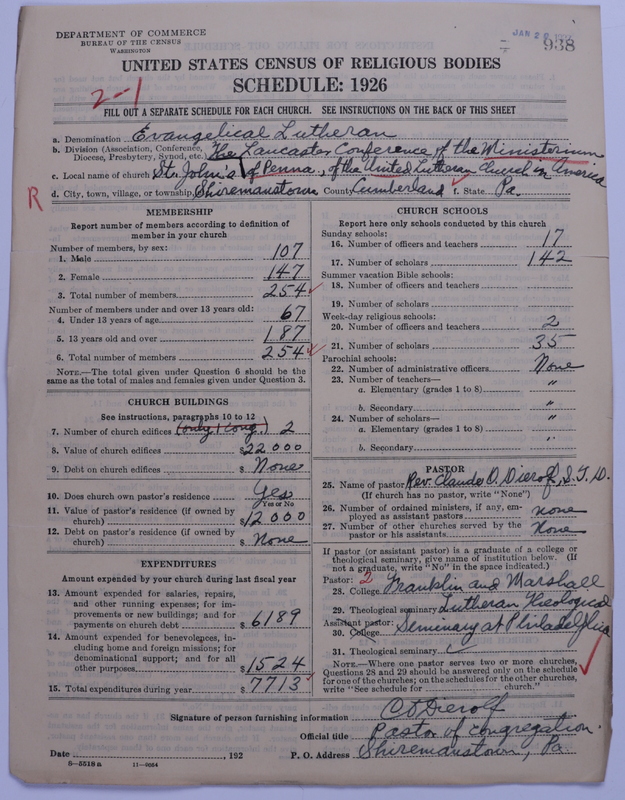 DEPARTMENT OF COMMERCE
BUREAU OF THE CENSUS
WASHINGTON
JAN 20
938
UNITED STATES CENSUS OF RELIGIOUS BODIES
SCHEDULE: 1926
2-1
FILL OUT A SEPARATE SCHEDULE FOR EACH CHURCH. SEE INSTRUCTIONS ON THE BACK OF THIS SHEET
a. Denomination Evangelical Lutheran
b. Division (Association, Conference, Diocese, Presbytery, Synod, etc.) The Lancaster Conference of the Ministerium
c. Local name of church St. John's of Penna., of the United Lutheran Church in America
R
d. City, town, village, or township Shiremanstown County Cumberland f. State Pa.
MEMBERSHIP
Report number of members according to definition of
member in your church
Number of members, by sex:
1. Male 107
2. Female 147
3. Total number of members 254
Number of members under and over 13 years old:
4. Under 13 years of age 67
5. 13 years old and over 187
6. Total number of members 254
NOTE.—The total given under Question 6 should be the
same as the total of males and females given under Question 3.
CHURCH BUILDINGS
See instructions, paragraphs 10 to 12
7. Number of church edifices (only 1 Cong.) 2
8. Value of church edifices $22000
9. Debt on church edifices $None
10. Does church own pastor's residence Yes
Yes or No
11. Value of pastor's residence (if owned by
church) $12000
12. Debt on pastor's residence (if owned by
church) $None
EXPENDITURES
Amount expended by your church during last fiscal year
13. Amount expended for salaries, repairs,
and other running expenses; for im-
provements or new buildings; and for
payments on church debt $6189
14. Amount expended for benevolences, in-
cluding home and foreign missions; for
denominational support; and for all
other purposes $1524
15. Total expenditures during year $7713
CHURCH SCHOOLS
Report here only schools conducted by this church
Sunday schools:
16. Number of officers and teachers 17
17. Number of scholars 142
Summer vacation Bible schools:
18. Number of officers and teachers
19. Number of scholars
Week-day religious schools:
20. Number of officers and teachers 2
21. Number of scholars 35
Parochial schools:
22. Number of administrative officers None
23. Number of teachers—
a. Elementary (grades 1 to 8) "
b. Secondary "
24. Number of scholars—
a. Elementary (grades 1 to 8) "
b. Secondary "
PASTOR
25. Name of pastor Rev. Claude O. Dierolf, S.T.D.
(If church has no pastor, write "None")
26. Number of ordained ministers, if any, em-
ployed as assistant pastors none
27. Number of other churches served by the
pastor or his assistants None
If pastor (or assistant pastor) is a graduate of a college or
theological seminary, give name of institution below. (If
not a graduate, write "No" in the space indicated.)
Pastor: 2
28. College Franklin and Marshall
29. Theological seminary Lutheran Theological
Assistant pastor:
30. College Seminary at Philadelphia
31. Theological seminary
NOTE.—Where one pastor serves two or more churches,
Questions 28 and 29 should be answered only on the schedule
for one of the churches; on the schedules for the other churches,
write "See schedule for church."
Signature of person furnishing information C O Dierolf
Official title Pastor of congregation.
Date , 192 P. O. Address Shiremanstown, Pa.
8—5518 a 11—8664